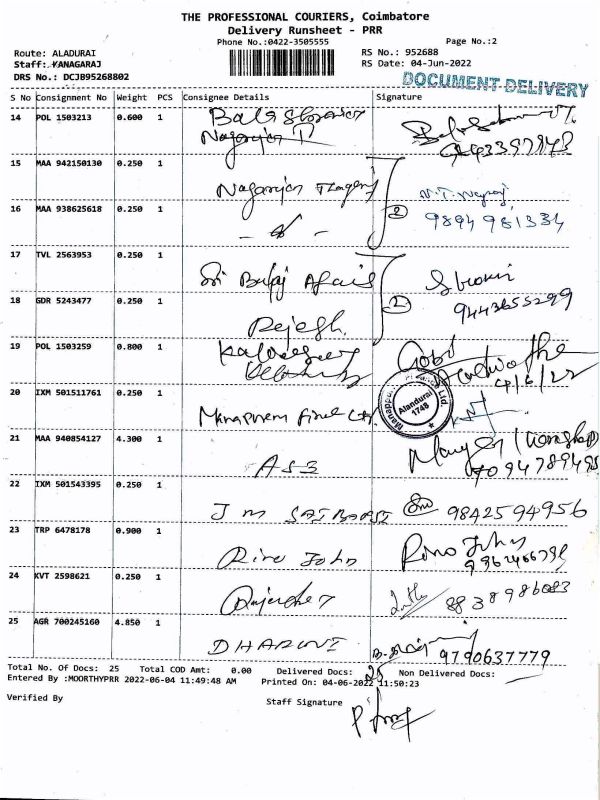 THE PROFESSIONAL COURIERS, Coimbatore
Delivery Runsheet - PRR
Phone No.:0422-3505555 Page No.:2
Route: ALADURAI RS No.: 952688
Staff: KANAGARAJ RS Date: 04-Jun-2022
DRS No.: DCJB95268802
DOCUMENT DELIVERY
S No Consignment No Weight PCS Consignee Details Signature
14 POL 1503213 0.600 1
Nagarajan
15 MAA 942150130 0.250 1
Nagarajan
2
16 MAA 938625618 0.250 1
9894981334
17 TVL 2563953 0.250 1
Sri Balaji
2
9443655299
18 GDR 5243477 0.250 1
Rejesh.
19 POL 1503259 0.800 1
4/6/22
20 IXM 501511761 0.250 1
Alandurai
1748
21 MAA 940854127 4.300 1
22 IXM 501543395 0.250 1
J m SAI
9842594956
23 TRP 6478178 0.900 1
Rino John Rino John
24 KVT 2598621 0.250 1
8838986083
25 AGR 700245160 4.850 1
DHARUNI
9790637779
Total No. Of Docs: 25 Total COD Amt: 0.00 Delivered Docs: 25 Non Delivered Docs:
Entered By :MOORTHYPRR 2022-06-04 11:49:48 AM Printed On: 04-06-2022 11:50:23
Verified By Staff Signature